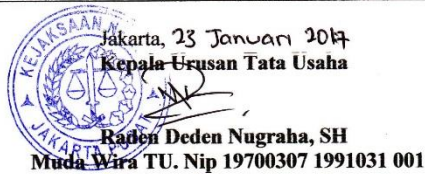 KEJAKSAAN N
JAKARTA PUSAT
Jakarta, 23 Januari 2017
Kepala Urusan Tata Usaha
Raden Deden Nugraha, SH
Muda Wira TU. Nip 19700307 1991031 001